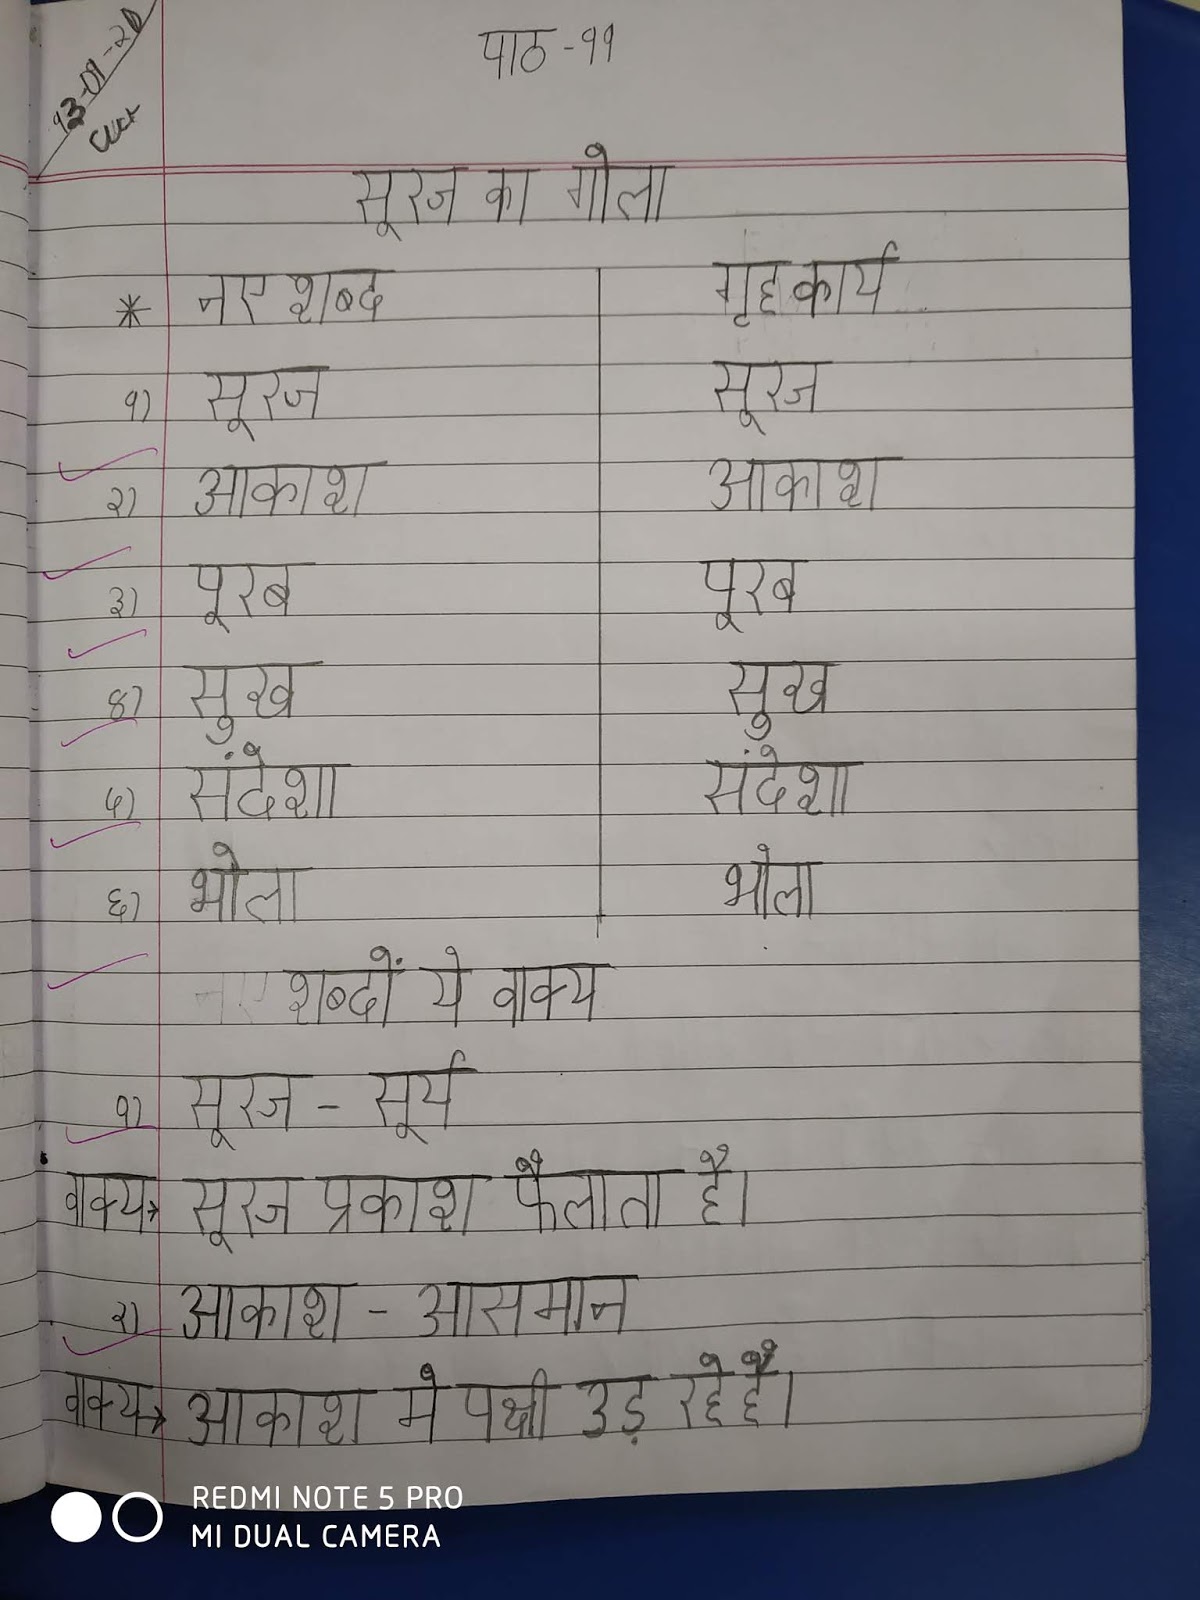 १३-०१-२०
पाठ - ११
सूरज का गोला
* नए शब्द गृहकार्य
१) सूरज सूरज
२) आकाश आकाश
३) पूरब पूरब
४) सुख सुख
५) संदेशा संदेशा
६) भोला भोला
नए शब्दों ये वाक्य
१) सूरज - सूर्य
वाक्य→ सूरज प्रकाश फैलाता है।
२) आकाश - आसमान
वाक्य→ आकाश मे पक्षी उड़ रहे हैं।
REDMI NOTE 5 PRO
MI DUAL CAMERA